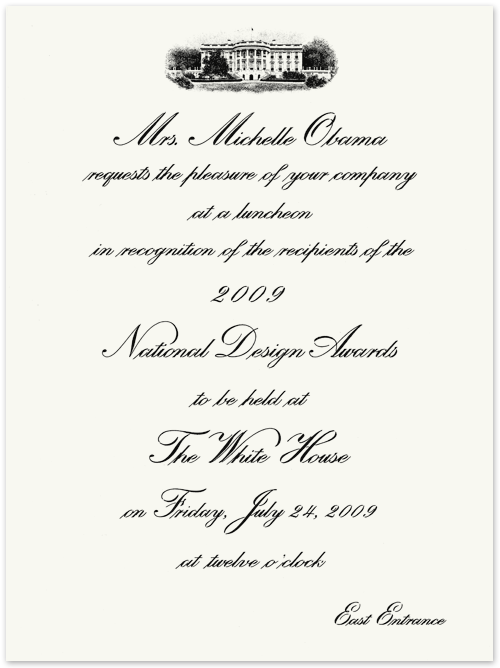 Mrs. Michelle Obama
requests the pleasure of your company
at a luncheon
in recognition of the recipients of the
2009
National Design Awards
to be held at
The White House
on Friday, July 24, 2009
at twelve o'clock
East Entrance